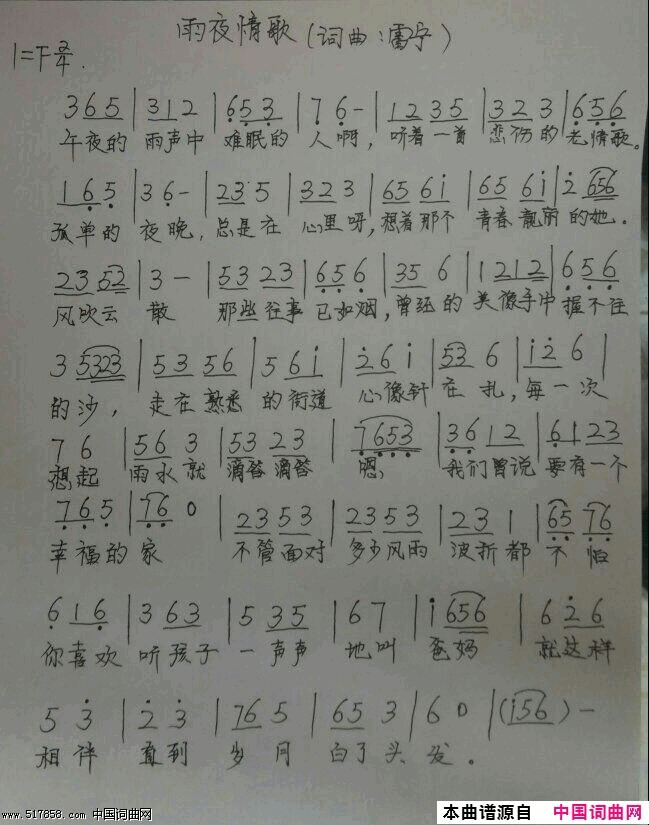 雨夜情歌(词曲:雷宇)
1=F 2/4.
3 6 5 | 3 1 2 | 6 5 3 | 7 6 - | 1 2 3 5 | 3 2 3 | 6 5 6
午夜的 雨声中 难眠的 人啊,听着一首 悲伤的 老情歌。
1 6 5 | 3 6 - | 2 3 5 | 3 2 3 | 6 5 6 i | 6 5 6 i | 2 6 5 6
孤单的 夜晚,总是在 心里呀,想着那个 青春靓丽的她.
2 3 5 2 | 3 - | 5 3 2 3 | 6 5 6 | 3 5 6 | 1 2 1 2 | 6 5 6
风吹云 散 那些往事 已如烟,曾经的 美像手中 握不住
3 5 3 2 3 | 5 3 5 6 | 5 6 i | 2 6 i | 5 3 6 | i 2 6 |
的沙, 走在熟悉 的街道 心像针 在 扎,每一次
7 6 | 5 6 3 | 5 3 2 3 | 7 6 5 3 | 3 6 1 2 | 6 1 2 3
想起 雨水就 滴答滴答 嗯, 我们曾说 要有一个
7 6 5 | 7 6 0 | 2 3 5 3 | 2 3 5 3 | 2 3 1 | 6 5 7 6
幸福的 家 不管面对 多少风雨 波折都 不 怕
6 1 6 | 3 6 3 | 5 3 5 | 6 7 | i 6 5 6 | 6 2 6
你喜欢 听孩子 一声声 地叫 爸妈 就这样
5 3 | 2 3 | 7 6 5 | 6 5 3 | 6 0 | (i 5 6) -
相伴 直到 岁月 白了头 发。
www.517858.com 中国词曲网
本曲谱源自 中国词曲网